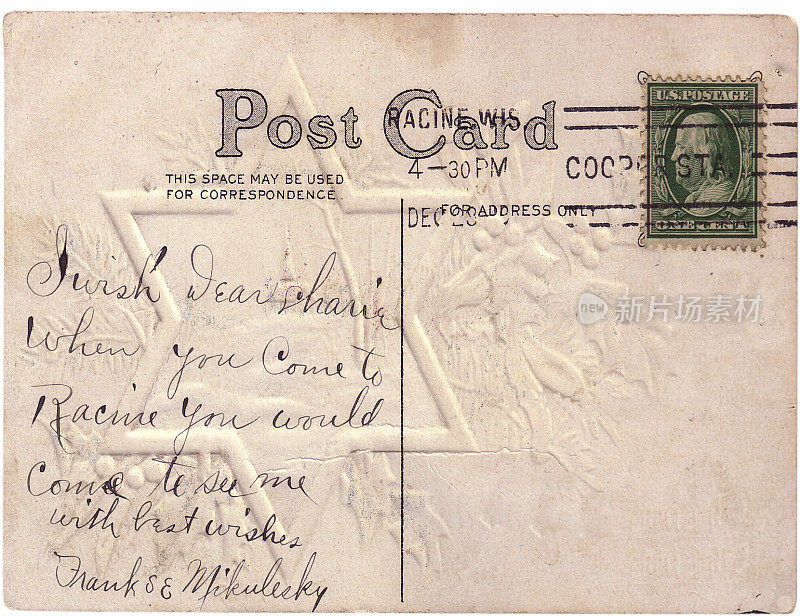 Post Card
RACINE. WIS.
4-30 PM
COOPER STA.
DEC 28
U.S. POSTAGE
ONE CENT
THIS SPACE MAY BE USED
FOR CORRESPONDENCE.
FOR ADDRESS ONLY
I wish Dear
When you Come to
Racine you would
Come to see me
with best wishes
Frank Mikulesky
new